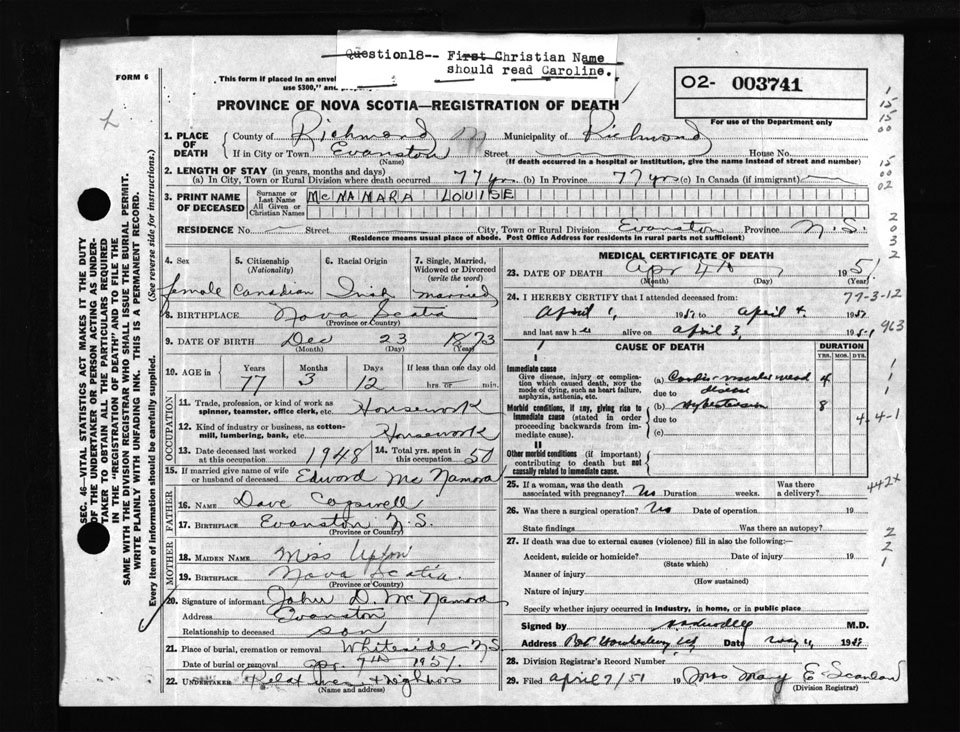 Question18-- First Christian Name
should read Caroline.
FORM 6
This form if placed in an envel
use $300," and
O2- 003741
PROVINCE OF NOVA SCOTIA—REGISTRATION OF DEATH
For use of the Department only
1. PLACE OF DEATH County of Richmond Municipality of Richmond
If in City or Town Evanston (Name) Street House No.
(If death occurred in a hospital or institution, give the name instead of street and number)
2. LENGTH OF STAY (in years, months and days)
(a) In City, Town or Rural Division where death occurred 77 yrs (b) In Province 77 yrs (c) In Canada (if immigrant)
3. PRINT NAME OF DECEASED Surname or Last Name All Given or Christian Names McNAMARA LOUISE
RESIDENCE No. Street City, Town or Rural Division Evanston Province N.S.
(Residence means usual place of abode. Post Office Address for residents in rural parts not sufficient)
4. Sex female
5. Citizenship (Nationality) Canadian
6. Racial Origin Irish
7. Single, Married, Widowed or Divorced (write the word) married
8. BIRTHPLACE Nova Scotia
(Province or Country)
9. DATE OF BIRTH Dec 23 1873
(Month) (Day) (Year)
10. AGE in Years Months Days If less than one day old
77 3 12 hrs. or min.
OCCUPATION
11. Trade, profession, or kind of work as spinner, teamster, office clerk, etc. Housework
12. Kind of industry or business, as cotton-mill, lumbering, bank, etc. Housework
13. Date deceased last worked at this occupation 1948
14. Total yrs. spent in this occupation 50
15. If married give name of wife or husband of deceased Edward McNamara
FATHER
16. Name Dave Cogswell
17. Birthplace Evanston N.S.
(Province or Country)
MOTHER
18. Maiden Name Miss Upton
19. Birthplace Nova Scotia
(Province or Country)
20. Signature of informant John D. McNamara
Address Evanston
Relationship to deceased son
21. Place of burial, cremation or removal Whiteside N.S
Date of burial or removal Apr. 7th 1951
22. Undertaker Relatives + neighbors
(Name and address)
MEDICAL CERTIFICATE OF DEATH
23. DATE OF DEATH Apr 4th 1951
(Month) (Day) (Year)
24. I HEREBY CERTIFY that I attended deceased from:
April 1, 1951 to April 4, 1951
and last saw her alive on April 3, 1951
CAUSE OF DEATH
DURATION
YRS. MOS. DYS.
Immediate cause
Give disease, injury or complication which caused death, not the mode of dying, such as heart failure, asphyxia, asthenia, etc.
(a) disease 4
due to
Morbid conditions, if any, giving rise to immediate cause (stated in order proceeding backwards from immediate cause).
(b) Hypertension 8
due to
(c)
Other morbid conditions (if important) contributing to death but not causally related to immediate cause.
25. If a woman, was the death associated with pregnancy? No Duration weeks. Was there a delivery?
26. Was there a surgical operation? No Date of operation 19
State findings Was there an autopsy?
27. If death was due to external causes (violence) fill in also the following:—
Accident, suicide or homicide? Date of injury 19
(State which)
Manner of injury
(How sustained)
Nature of injury
Specify whether injury occurred in industry, in home, or in public place
Signed by M.D.
Address Date May 4, 1951
28. Division Registrar's Record Number
29. Filed April 7/51 19 Mrs Mary E Scanlan
(Division Registrar)
77-3-12
963
4.4-1
442x
1
15
15
00
15
00
02
2
0
3
2
1
1
1
2
2
1
SEC. 46—VITAL STATISTICS ACT MAKES IT THE DUTY
OF THE UNDERTAKER OR PERSON ACTING AS UNDER-
TAKER TO OBTAIN ALL THE PARTICULARS REQUIRED
IN THE "REGISTRATION OF DEATH" AND TO FILE THE
SAME WITH THE DIVISION REGISTRAR WHO SHALL ISSUE THE BURIAL PERMIT.
WRITE PLAINLY WITH UNFADING INK. THIS IS A PERMANENT RECORD.
Every item of information should be carefully supplied. (See reverse side for instructions.)